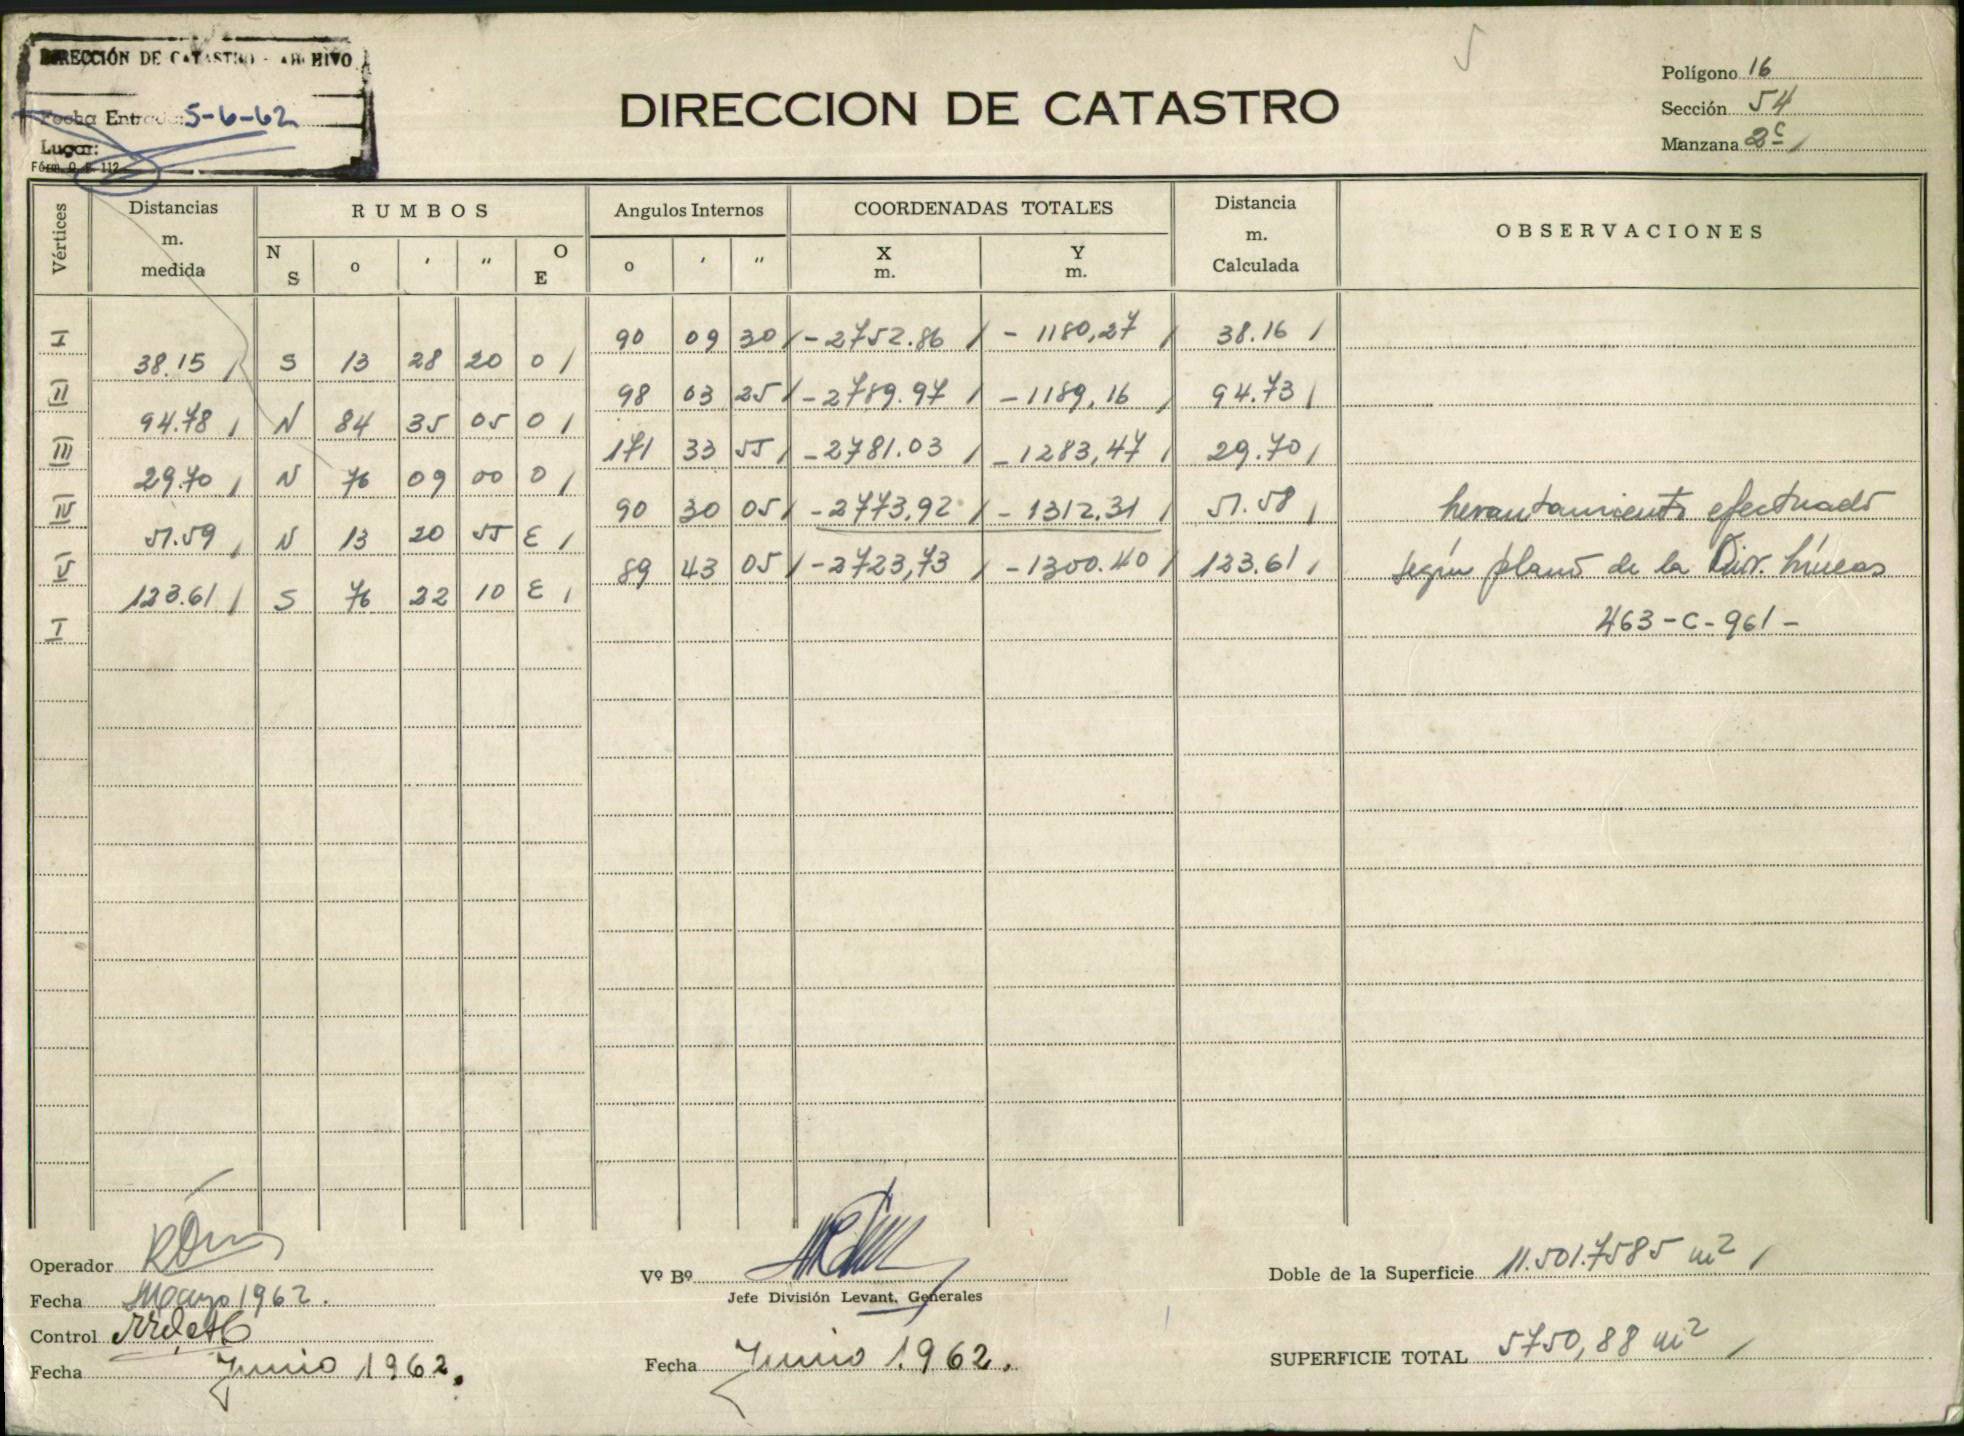 DIRECCIÓN DE CATASTRO - ARCHIVO
Fecha Entrada: 5-6-62
Lugar:
Fórm. O. P. 112
DIRECCION DE CATASTRO
Polígono 16
Sección 54
Manzana 2ᶜ
Vértices Distancias m. medida RUMBOS Angulos Internos COORDENADAS TOTALES Distancia m. Calculada OBSERVACIONES
N S o ' " O E o ' " X m. Y m.
I 90 09 30 -2752.86 -1180,27 38.16
38.15 S 13 28 20 O
II 98 03 25 -2789.97 -1189,16 94.73
94.78 N 84 35 05 O
III 171 33 55 -2781.03 -1283,47 29.70
29.70 N 76 09 00 O
IV 90 30 05 -2773,92 -1312.31 51.58 Levantamiento efectuado
51.59 N 13 20 55 E
V 89 43 05 -2723,73 -1300.40 123.61 según plano de la Div. Líneas
123.61 S 76 22 10 E
I 463-C-961-
Operador
Fecha Mayo 1962.
Control
Fecha Junio 1962.
Vº Bº
Jefe División Levant. Generales
Fecha Junio 1.962.
Doble de la Superficie 11.501.7585 m²
SUPERFICIE TOTAL 5750,88 m²